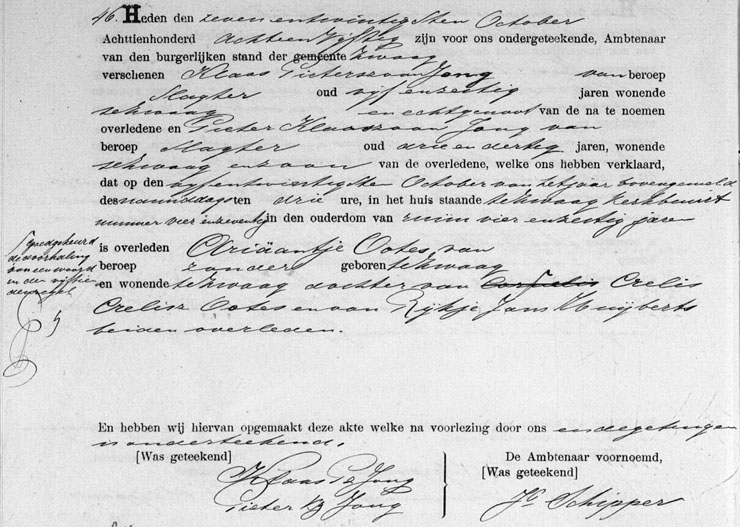 46. Heden den zeven en twintigsten October
Achttienhonderd achtenvijftig zijn voor ons ondergeteekende, Ambtenaar
van den burgerlijken stand der gemeente Zwaag
verschenen Klaas Pieterszoon Jong van beroep
Slagter oud vijf en zestig jaren wonende
te Zwaag en echtgenoot van de na te noemen
overledene en Pieter Klaaszoon Jong van
beroep Slagter oud drie en dertig jaren, wonende
te Zwaag en zoon van de overledene, welke ons hebben verklaard,
dat op den vijfentwintigsten October van het jaar bovengemeld
des namiddags ten drie ure, in het huis staande te Zwaag Kerkbuurt
nummer vier en zeventig in den ouderdom van ruim vier en zestig jaren
is overleden Ariäantje Ootes, van
beroep zonder geboren te Zwaag
en wonende te Zwaag dochter van Cornelis Crelis
Crelisz Ootes en van Rijkje Jans Huijberts
beiden overleden.
goedgekeurd
de doorhaling
van een woord
in den vijftien
den regel
En hebben wij hiervan opgemaakt deze akte welke na voorlezing door ons en de getuigen
is onderteekend.
[Was geteekend]
Klaas Pz Jong
Pieter Kz Jong
De Ambtenaar voornoemd,
[Was geteekend]
Jb Schipper